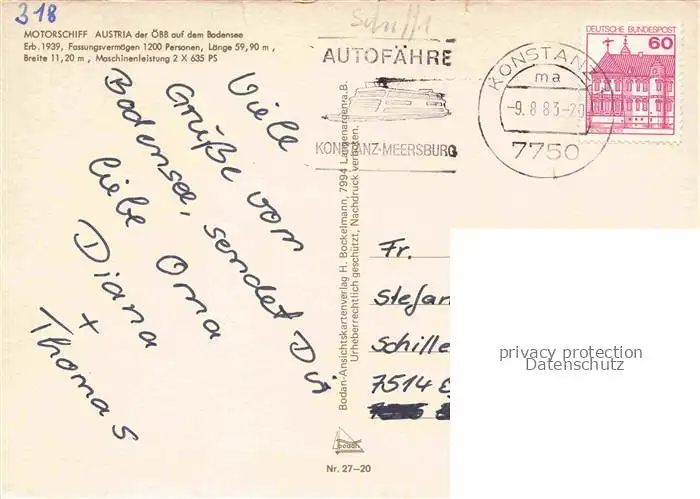 318
Schiff
MOTORSCHIFF AUSTRIA der ÖBB auf dem Bodensee
Erb. 1939, Fassungsvermögen 1200 Personen, Länge 59,90 m,
Breite 11,20 m, Maschinenleistung 2 X 635 PS
AUTOFÄHRE
KONSTANZ-MEERSBURG
KONSTANZ
ma
-9.8.83-20
7750
DEUTSCHE BUNDESPOST
60
Viele
Grüße vom
Bodensee, sendet Dir
liebe Oma
Diana
+
Thomas
Bodan-Ansichtskartenverlag H. Bockelmann, 7994 Langenargen a. B.
Urheberrechtlich geschützt, Nachdruck verboten.
Fr.
Stefan
Schille
7514 E
privacy protection
Datenschutz
bodan
Nr. 27-20